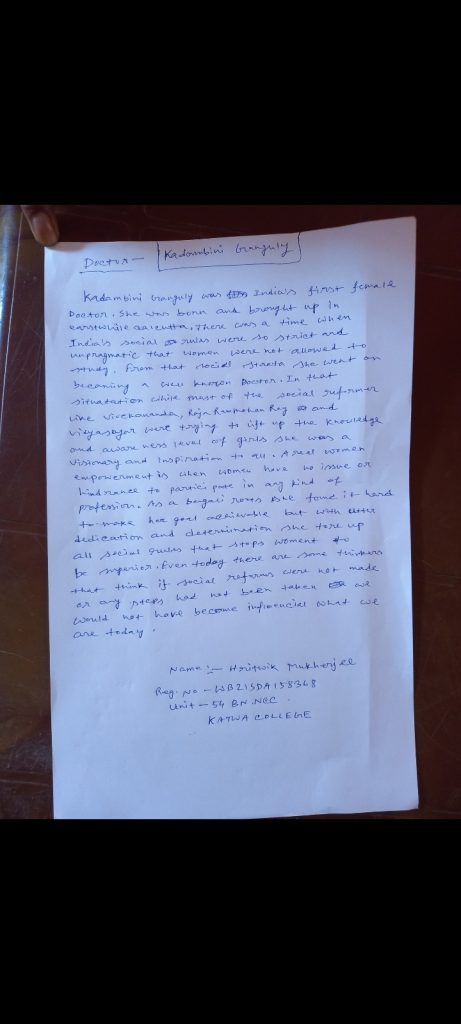 Doctor - Kadambini Ganguly
Kadambini Ganguly was India's first female
Doctor. She was born and brought up in
earstwhile calcutta. There was a time when
India's social rules were so strict and
unpragmatic that women were not allowed to
study. From that social strecta she went on
becaming a well known Doctor. In that
situatation while most of the social reformer
like vivekananda, Raja Rammohan Roy and
vidyasagar were trying to lift up the knowledge
and awareness level of girls she was a
visionary and inspiration to all. A real women
empowerment is when women have no issue or
hindrance to participate in any kind of
profession. As a bengali roots she found it hard
to make her goal achievable but with utter
dedication and determination she tore up
all social rules that stops woment to
be superior. Even today there are some thinkers
that think if social reforms were not made
or any steps had not been taken we
would not have become influencial what we
are today.
Name :- Hritwik Mukherjee
Reg. No - WB21SDA158368
Unit - 54 BN NCC.
KATWA COLLEGE